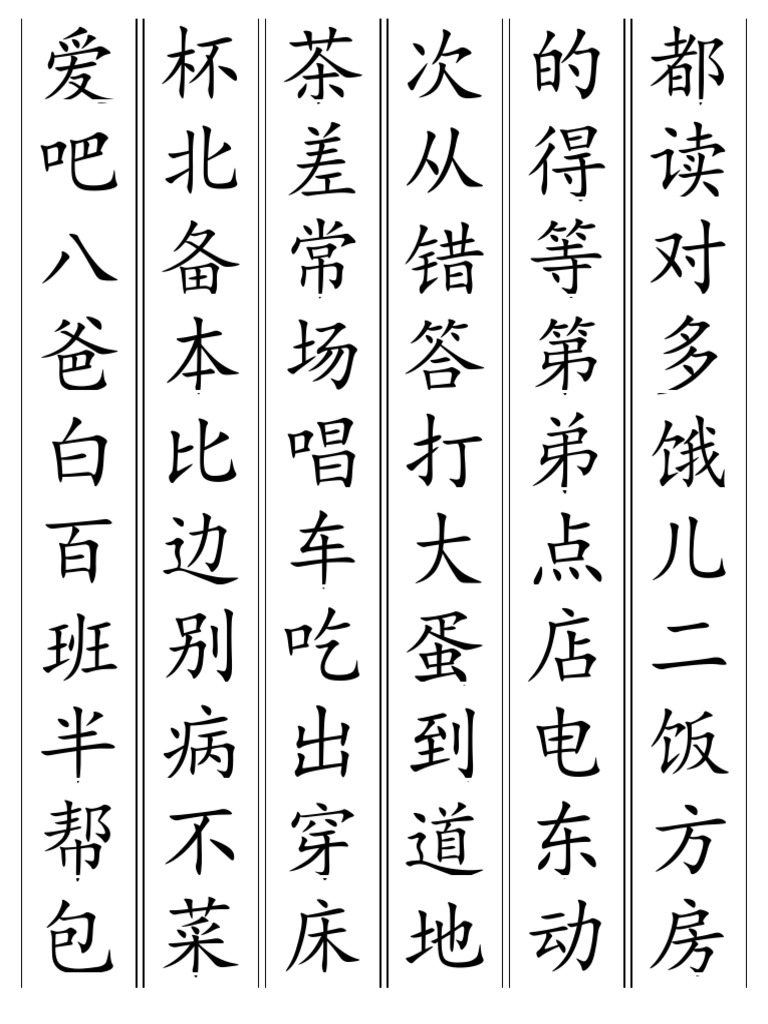 爱吧八爸白百班半帮包
杯北备本比边别病不菜
茶差常场唱车吃出穿床
次从错答打大蛋到道地
的得等第弟点店电东动
都读对多饿儿二饭方房